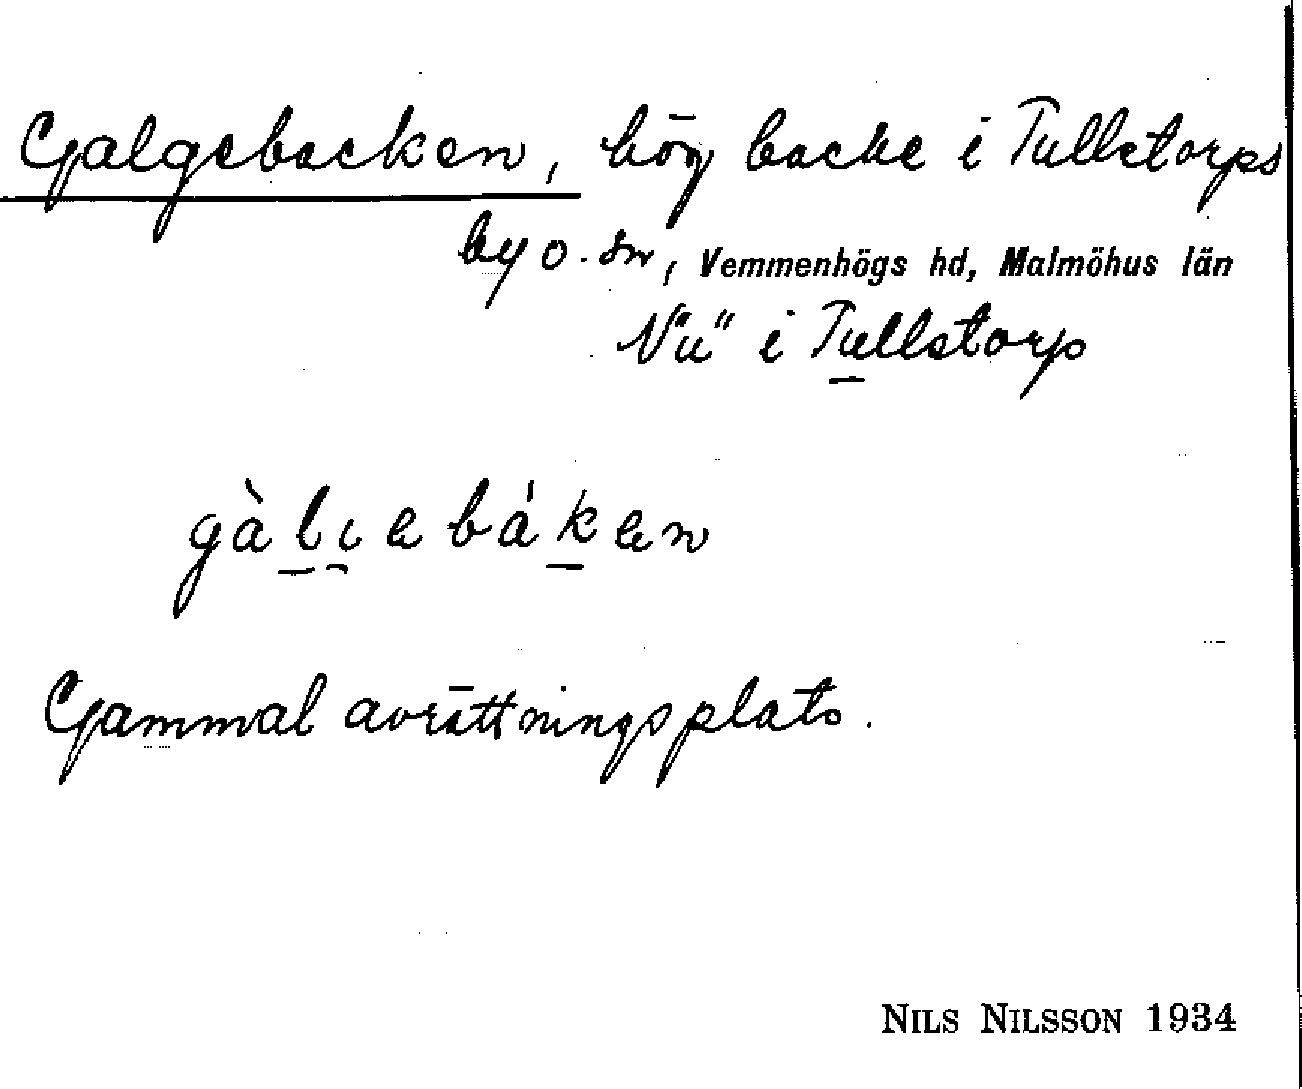 Galgebacken, hög backe i Tullstorps
by o. sn, Vemmenhögs hd, Malmöhus län
i Tullstorp
Gammal avrättningsplats.
NILS NILSSON 1934